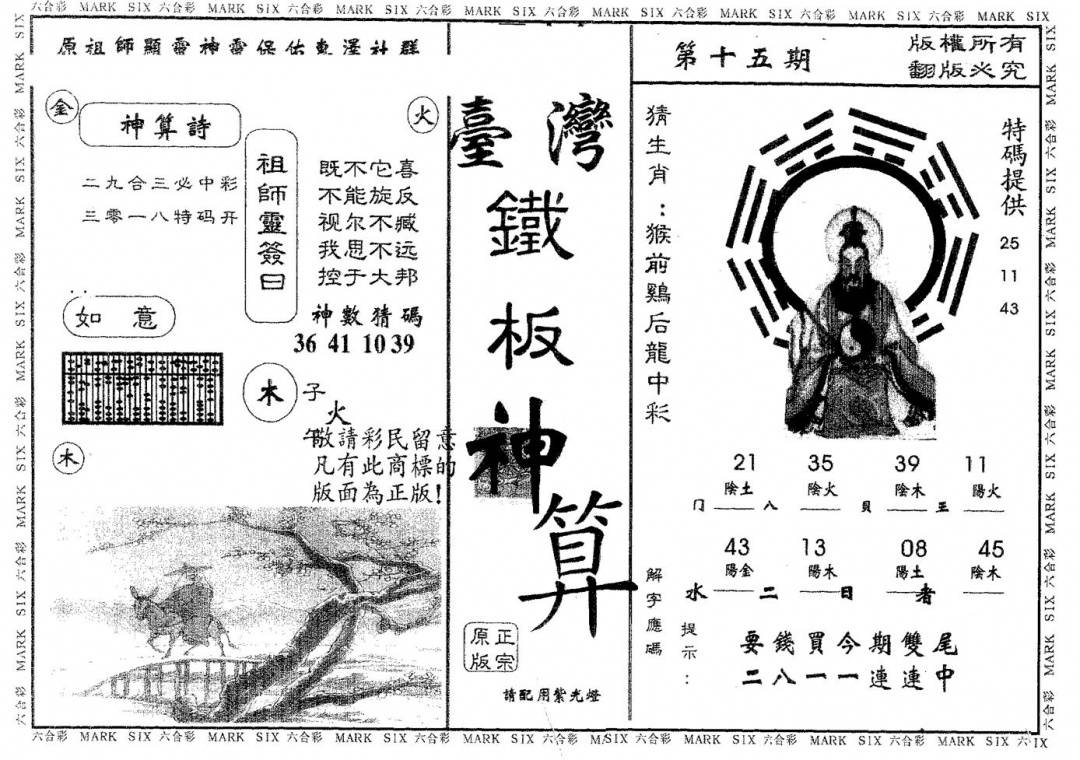 六合彩 MARK SIX 六合彩 MARK SIX 六合彩 MARK SIX 六合彩 MARK SIX 六合彩 MARK SIX 六合彩 MARK SIX 六合彩 MARK SIX 六合彩 MARK SIX
原祖師顯靈神靈保佑 社群
第十五期
版權所有
翻版必究
金
神算詩
火
二九合三必中彩
三零一八特码开
祖師靈簽曰
既不它喜
不能旋反
视尔不臧
我思不远
控于大邦
神數猜碼
36 41 10 39
如意
木 子
火
午
敬請彩民留意
凡有此商標的
版面為正版!
木
臺灣
鐵
板
神
算
正宗
原版
請配用紫光燈
猜生肖：猴前鷄后龍中彩
特碼提供
25
11
43
21 35 39 11
陰土 陰火 陰木 陽火
门 八 貝 王
43 13 08 45
陽金 陽木 陽土 陰木
水 二 日 者
解字應碼
提示：
要錢買今期雙尾
二八一一連連中
六合彩 MARK SIX 六合彩 MARK SIX 六合彩 MARK SIX 六合彩 MARK SIX 六合彩 M/SIX 六合彩 MARK SIX 六合彩 MARK SIX 六合彩 MARK SIX 六·IX